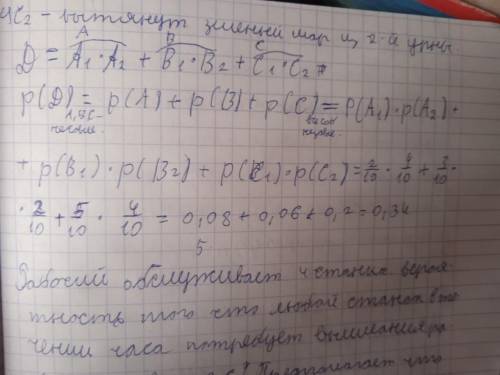 C₂ - вытянут зеленый шар из 2-й урны.
A B C
D = A₁·A₂ + B₁·B₂ + C₁·C₂ =
p(D) = p(A) + p(B) + p(C) = P(A₁)·p(A₂)·
+ p(B₁)·p(B₂) + p(C₁)·p(C₂) = 2/10 · 4/10 + 3/10 ·
· 2/10 + 5/10 · 4/10 = 0,08 + 0,06 + 0,2 = 0,34
5
Рабочий обслуживает 4 станка вероя-
тность того что любой станок в те-
чении часа потребует
Предполагает что